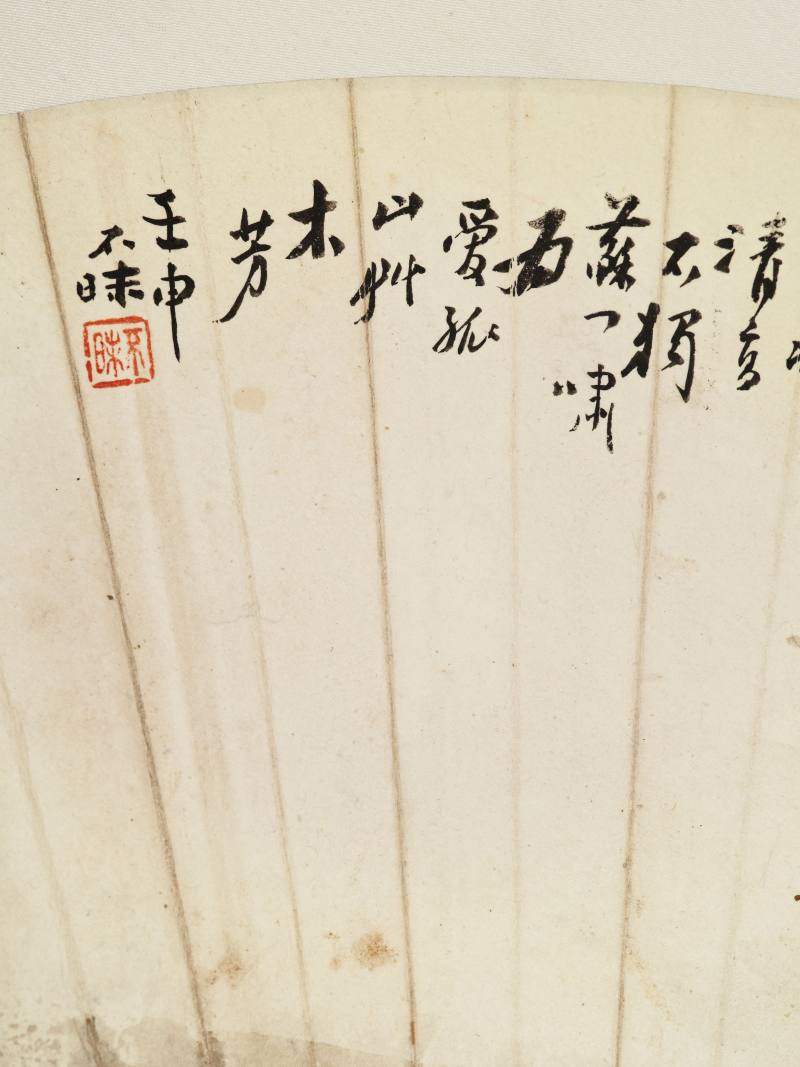 清高
不獨
蘇門嘯
為
愛孤
山艸
木
芳
壬申
不昧
不昧